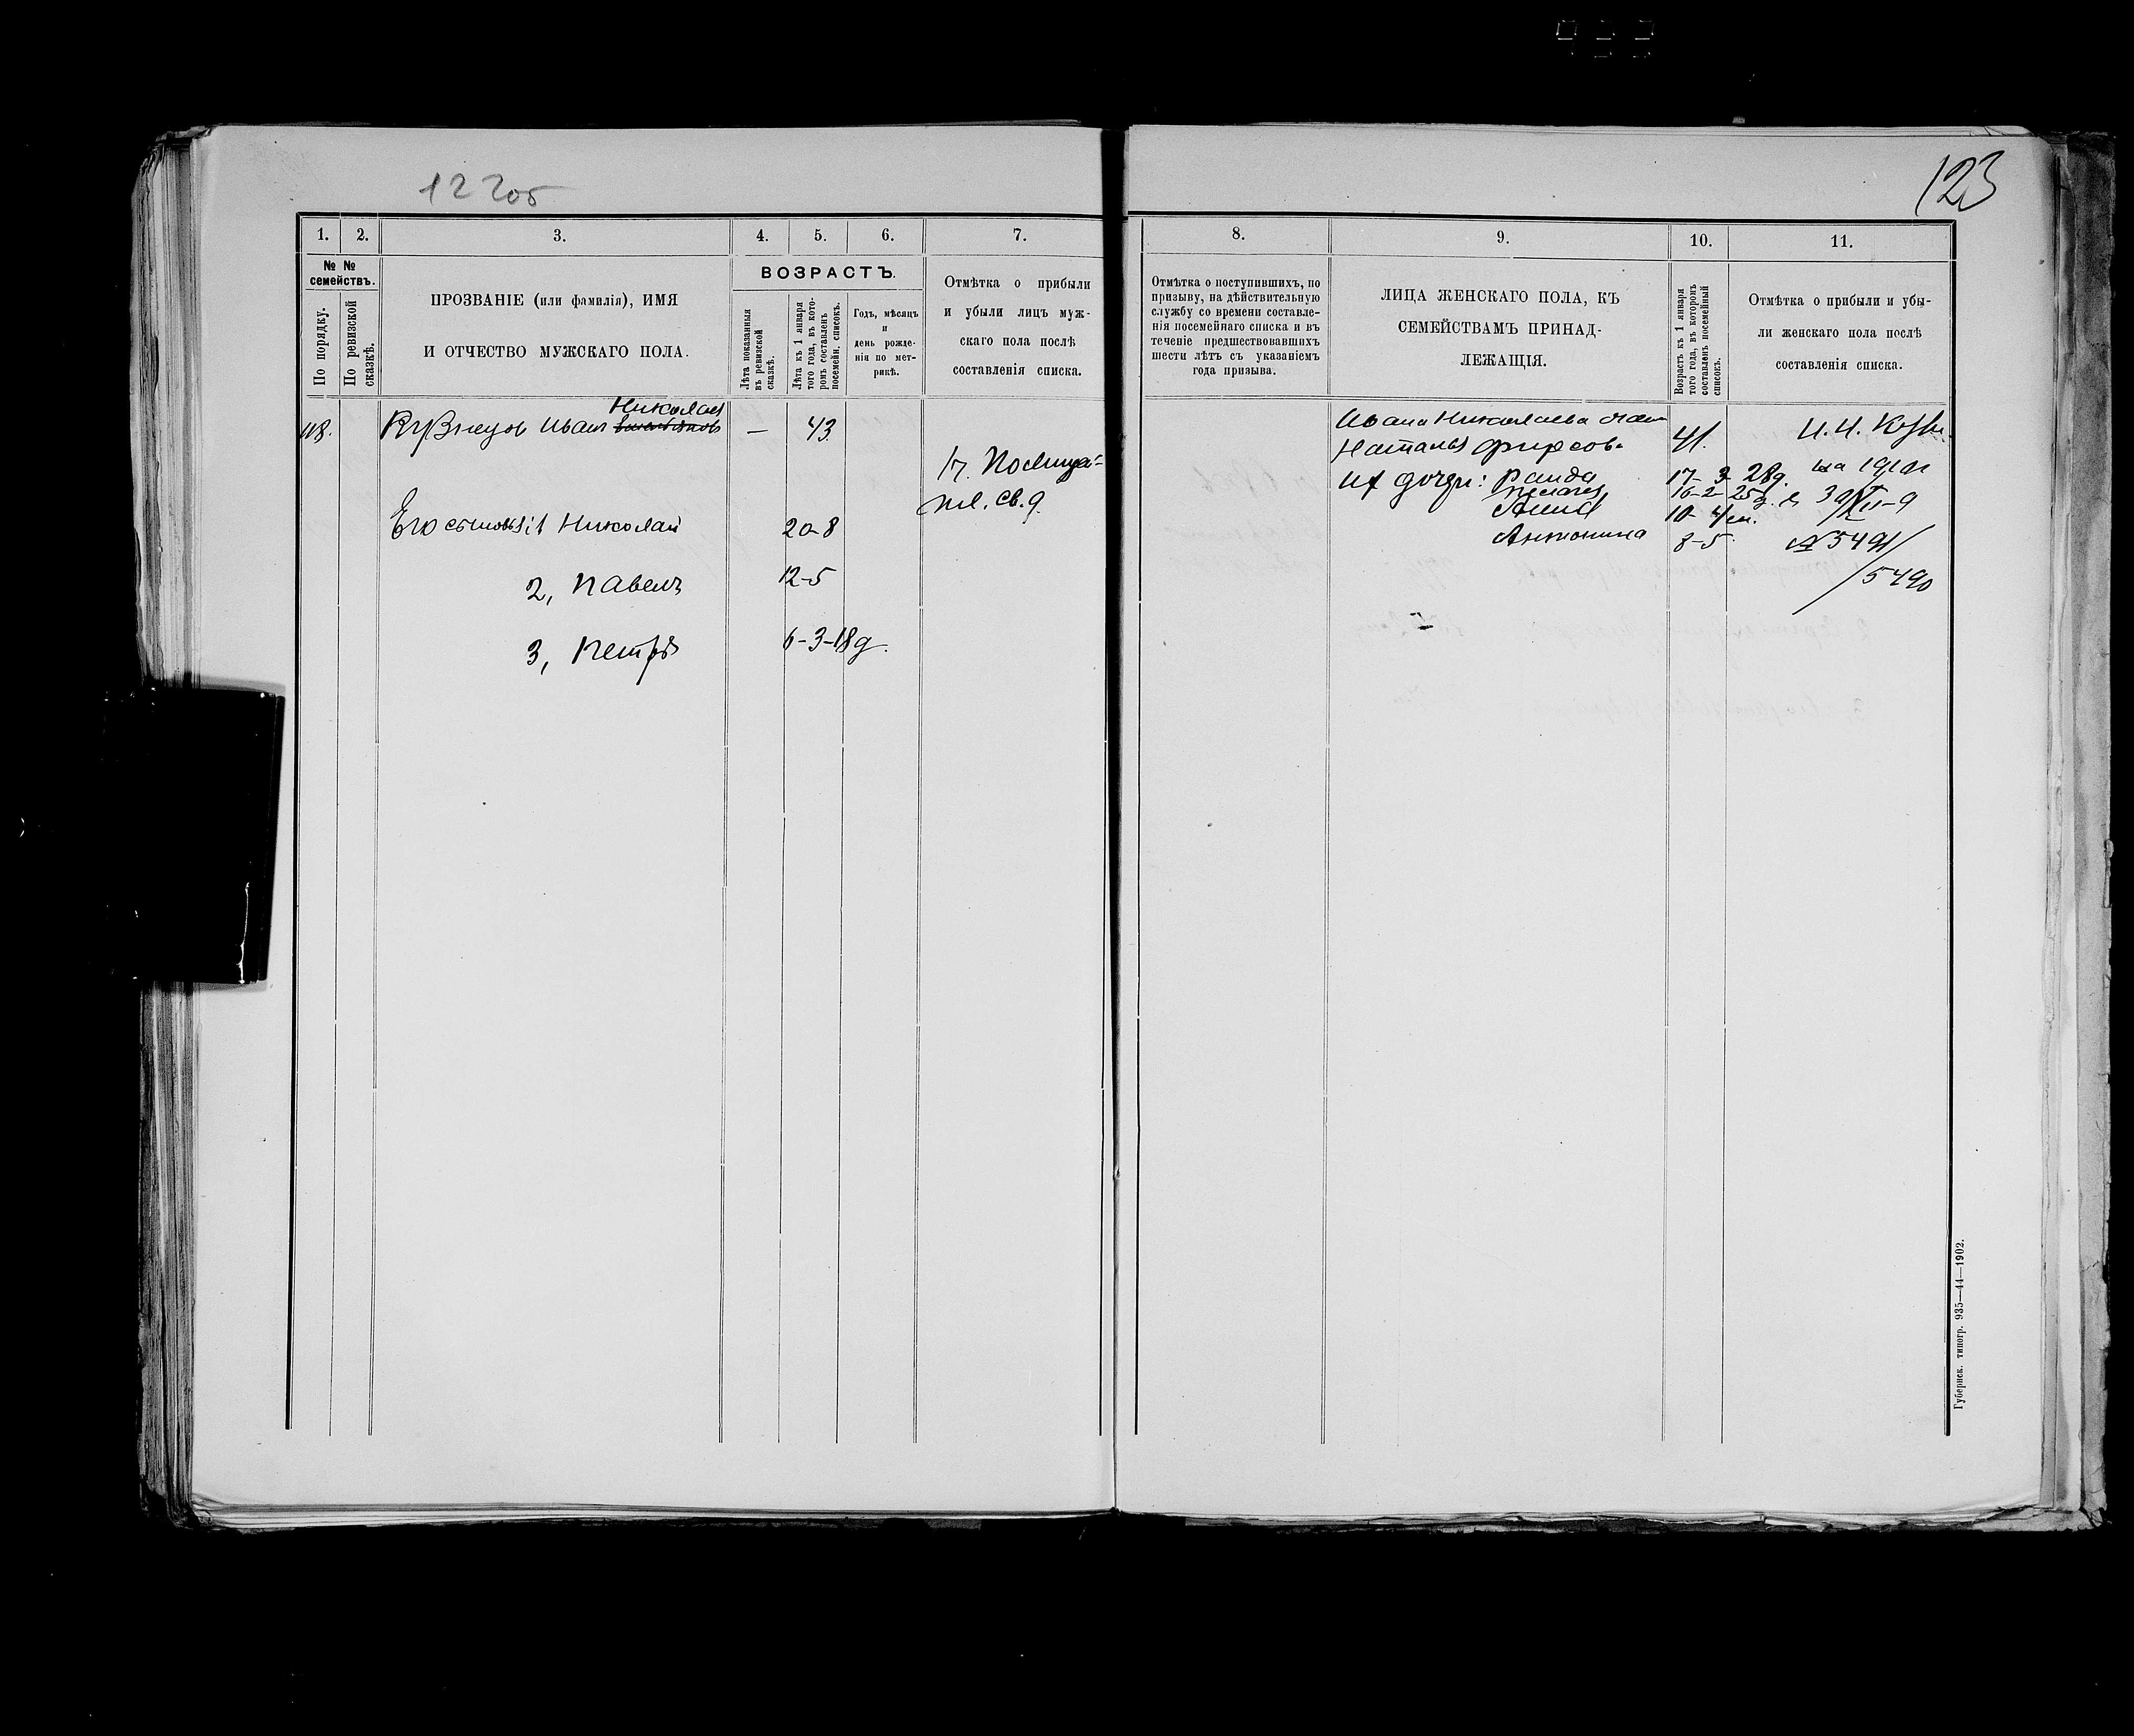 123
1. 2. 3. 4. 5. 6. 7.
№ №
семействъ.
По порядку.
По ревизской
сказкѣ.
ПРОЗВАНІЕ (или фамилія), ИМЯ
И ОТЧЕСТВО МУЖСКАГО ПОЛА.
ВОЗРАСТЪ.
Лѣта показанныя
въ ревизской
сказкѣ.
Лѣта къ 1 января
того года, въ кото-
ромъ составленъ
посемейн. списокъ.
Годъ, мѣсяцъ
и
день рожде-
нія по мет-
рикѣ.
Отмѣтка о прибыли
и убыли лицъ муж-
скаго пола послѣ
составленія списка.
118. Кузнецов Иван Николаев — 43
Его сыновья: 1 Николай 20-8
2, Павелъ 12-5
3, Петръ 6-3-18 д.
8. 9. 10. 11.
Отмѣтка о поступившихъ, по
призыву, на дѣйствительную
службу со времени составле-
нія посемейнаго списка и въ
теченіе предшествовавшихъ
шести лѣтъ съ указаніемъ
года призыва.
ЛИЦА ЖЕНСКАГО ПОЛА, КЪ
СЕМЕЙСТВАМЪ ПРИНАД-
ЛЕЖАЩІЯ.
Возрастъ къ 1 января
того года, въ которомъ
составленъ посемейный
списокъ.
Отмѣтка о прибыли и убы-
ли женскаго пола послѣ
составленія списка.
Ивана Николаева жена
Наталья Фирсов. 41.
Их дочери: Раида 17-3-28 д.
16-2-25 д.
10-4 м.
Антонина 8-5
№ 5491/
/5490
Губернск. типогр. 935—44—1902.